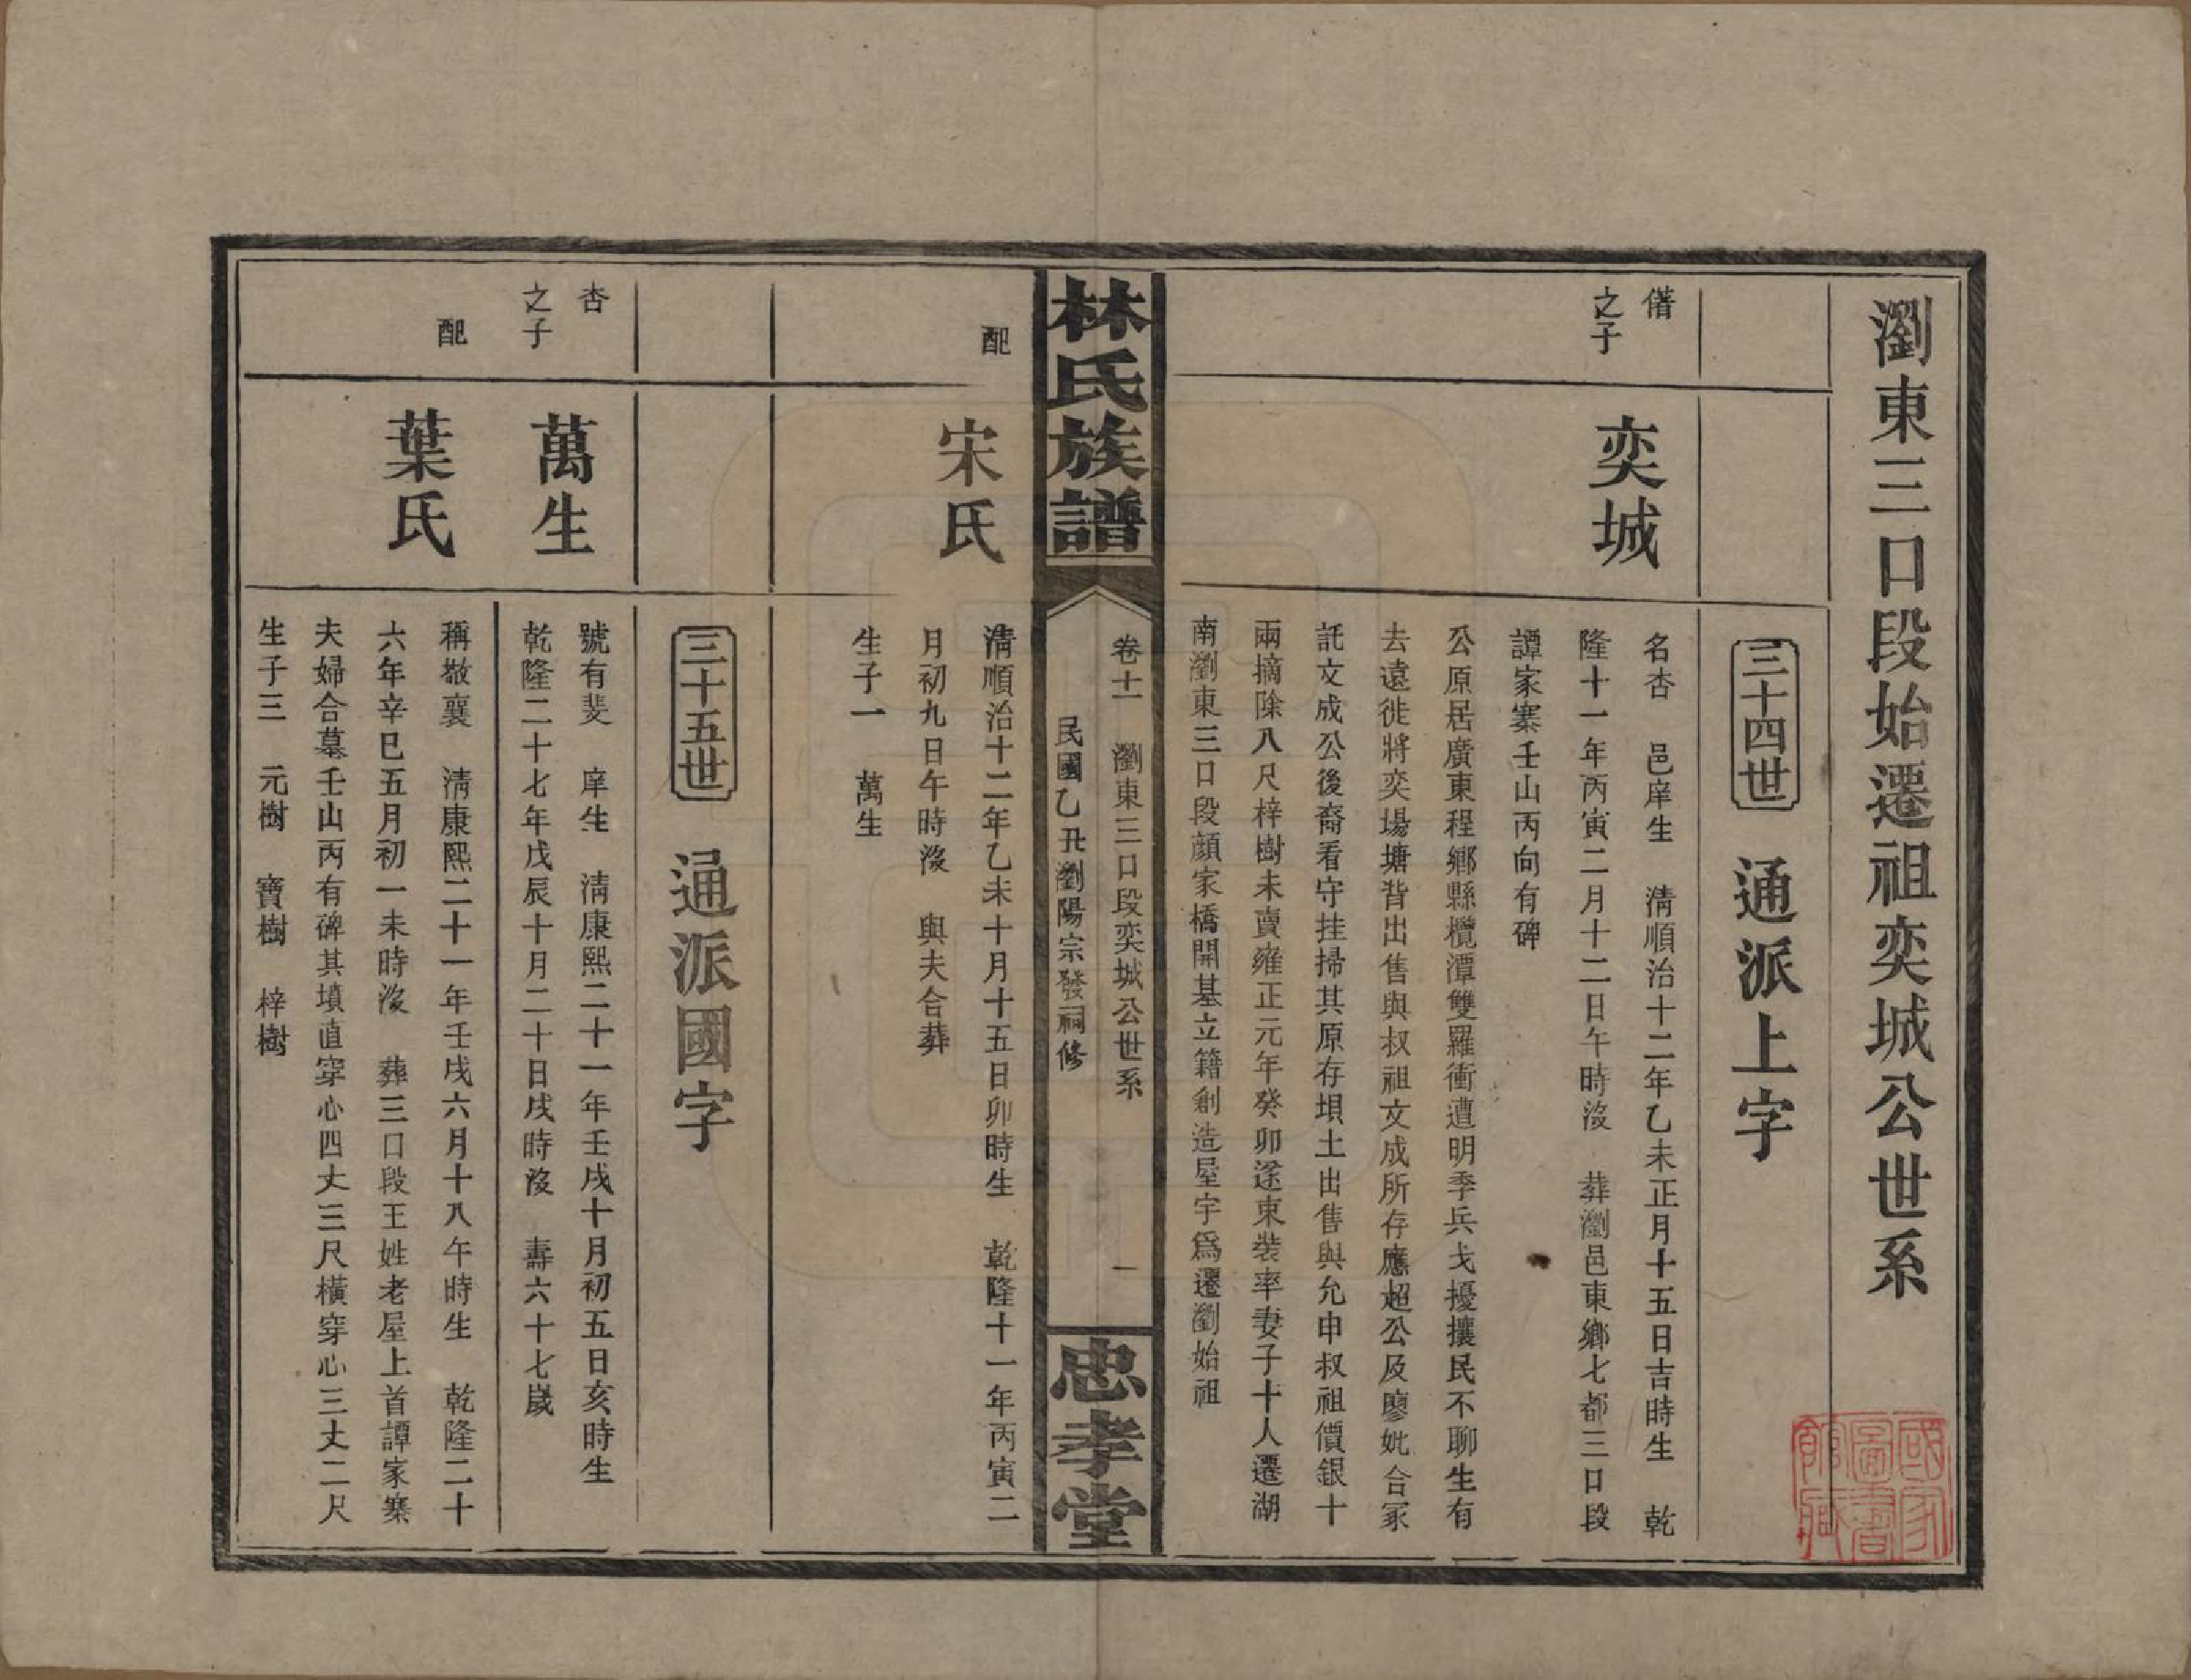 瀏東三口段始遷祖奕城公世系
三十四世　通派上字
僭
之子
奕城
名杏　邑庠生　淸順治十二年乙未正月十五日吉時生　乾
隆十一年丙寅二月十二日午時沒　葬瀏邑東鄉七都三口段
譚家寨壬山丙向有碑
公原居廣東程鄉縣欖潭雙羅衝遭明季兵戈擾攘民不聊生有
去遠徙將奕場塘背出售與叔祖文成所存應超公及廖妣合冢
託文成公後裔看守挂掃其原存垻土出售與允申叔祖價銀十
兩摘除八尺梓樹未賣雍正元年癸卯遂束裝率妻子十人遷湖
南瀏東三口段顏家橋開基立籍創造屋宇爲遷瀏始祖
林氏族譜
卷十一　瀏東三口段奕城公世系　一
民國乙丑瀏陽宗發祠修
忠孝堂
配
宋氏
淸順治十二年乙未十月十五日卯時生　乾隆十一年丙寅二
月初九日午時沒　與夫合葬
生子一　萬生
三十五世　通派國字
杏
之子
萬生
號有斐　庠生　淸康熙二十一年壬戌十月初五日亥時生
乾隆二十七年戊辰十月二十日戌時沒　壽六十七歲
配
葉氏
稱敬襄　淸康熙二十一年壬戌六月十八午時生　乾隆二十
六年辛巳五月初一未時沒　葬三口段王姓老屋上首譚家寨
夫婦合墓壬山丙有碑其墳直穿心四丈三尺橫穿心三丈二尺
生子三　元樹　寶樹　梓樹
國家圖書館藏